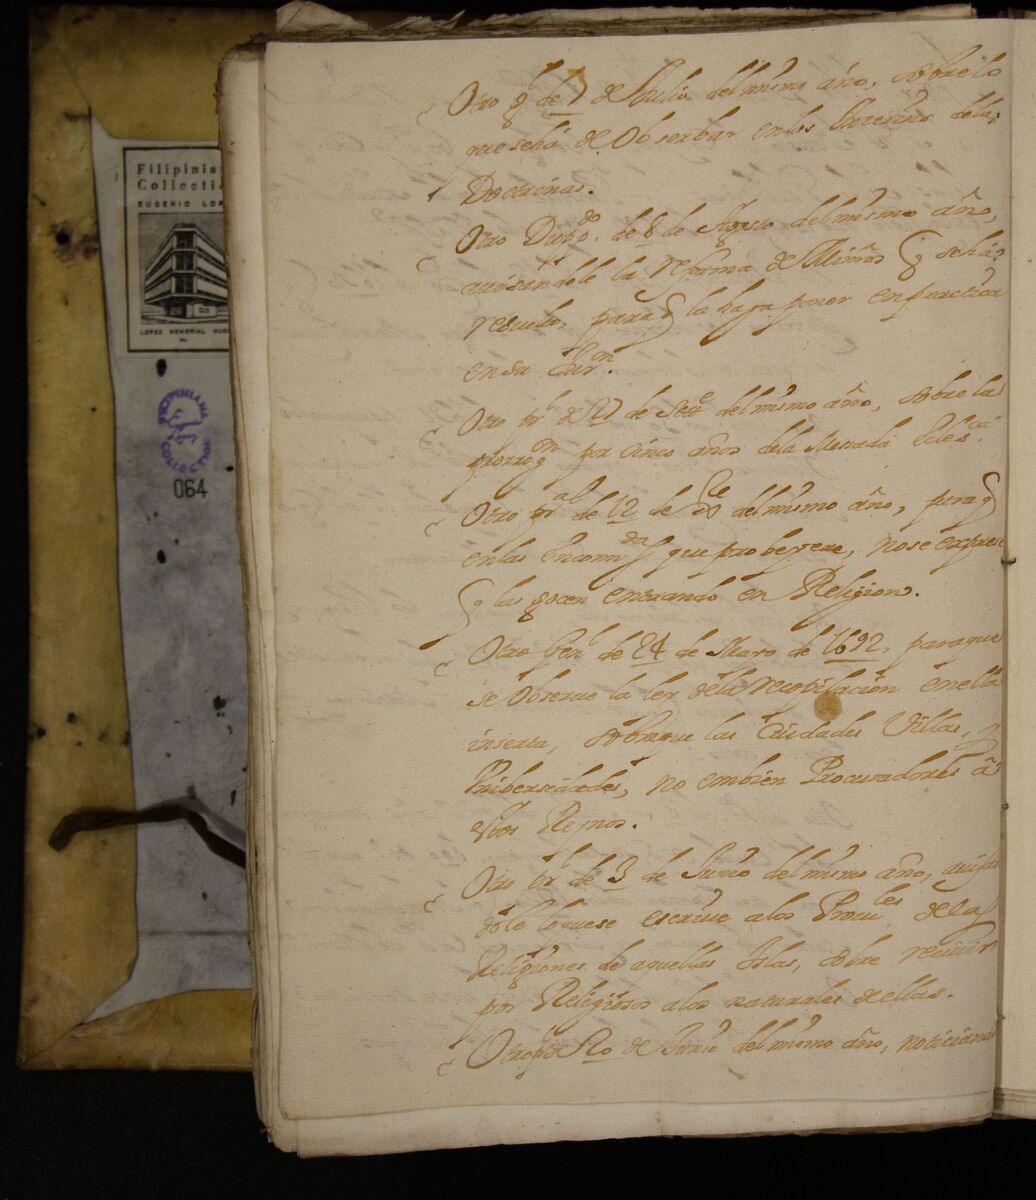 Filipinia
Collecti
EUGENIO LOP
LOPEZ MEMORIAL MUSE
FILIPINIANA COLLECTION
064
Otro de 7 de Julio del mismo año, sobre lo
que se há de Obserbar en los de las
Doctrinas.
Otro Dup.do de 8 de Agosto del mismo año,
avisandole la reforma de Minros q se há
resuelto, para q la haga poner en practica
en su Jur.on
Otro de 27 de Sett.e del mismo año, sobre la
prorrog.on por cinco años de la Messada Ecles.ca
Otro de 12 de del mismo año, para q
en las Encom.das que probeyere, no se exprese
q las gocen entrando en Religion.
Otro Gen.l de 24 de Marzo de 1692, para que
se Observe la ley de la recopilacion en ella
inserta, sobre que las Ciudades Villas, y
Unibersidades, no embien Procuradores â
estos Reynos.
Otro de 3 de Junio del mismo año, avisan
dole lo que se escrive a los Provin.les de las
Religiones de aquellas Islas, sobre
por Religiosos a los naturales de ellas.
Otro de de Junio del mismo año,